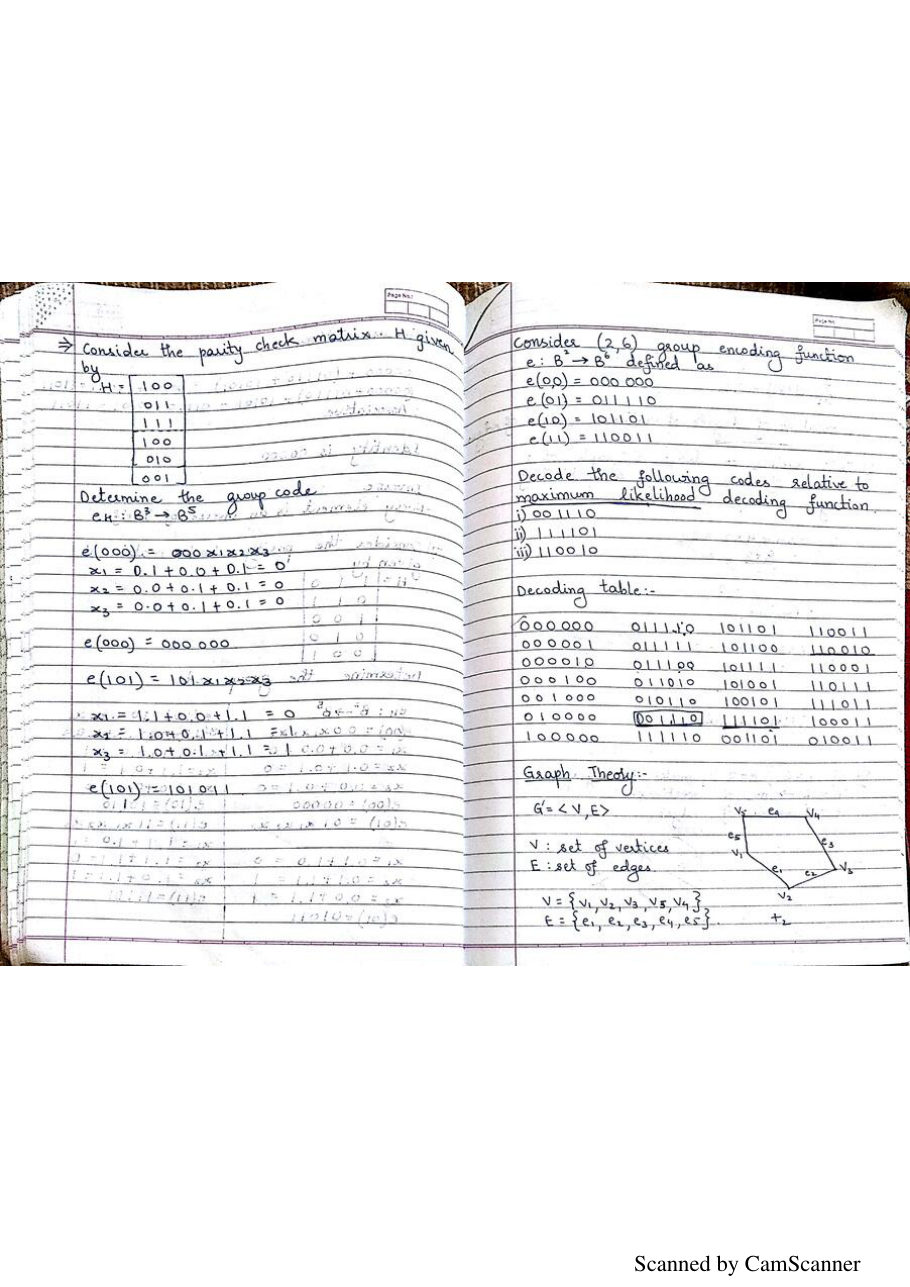 Page No.:
⇒ Consider the parity check matrix H given
by
H = 100
011
111
100
010
001
Determine the group code
eH : B³ → B⁵
e(000) = 000 x1x2x3
x1 = 0.1 + 0.0 + 0.1 = 0
x2 = 0.0 + 0.1 + 0.1 = 0
x3 = 0.0 + 0.1 + 0.1 = 0
e(000) = 000 000
e(101) = 101 x1x2x3
x1 = 1.1 + 0.0 + 1.1 = 0
x2 = 1.0 + 0.1 + 1.1 = 1
x3 = 1.0 + 0.1 + 1.1 = 1
e(101) = 101011
Page No.
Consider (2,6) group encoding function
e : B² → B⁶ defined as
e(00) = 000 000
e(01) = 011110
e(10) = 101101
e(11) = 110011
Decode the following codes relative to
maximum likelihood decoding function.
i) 001110
ii) 111101
iii) 110010
Decoding table:-
000000 011110 101101 110011
000001 011111 101100 110010
000010 011100 101111 110001
000100 011010 101001 110111
001000 010110 100101 111011
010000 001110 111101 100011
100000 111110 001101 010011
Graph Theory:-
G = < V, E >
V : set of vertices
E : set of edges
V = {v1, v2, v3, v5, v4}
E = {e1, e2, e3, e4, e5}.
V5 e4 V4
e5 e3
V1 e1 e2 V3
V2
+2
Scanned by CamScanner